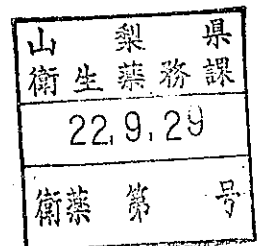 山梨県
衛生薬務課
22.9.29
衛薬第 号